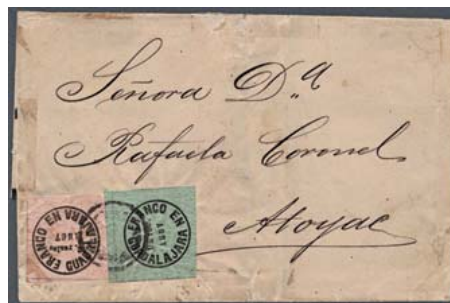 Señora D.ª
Rafaela Coronel
Atoyac
FRANCO EN GUADALAJARA
FRANCO EN GUADALAJARA